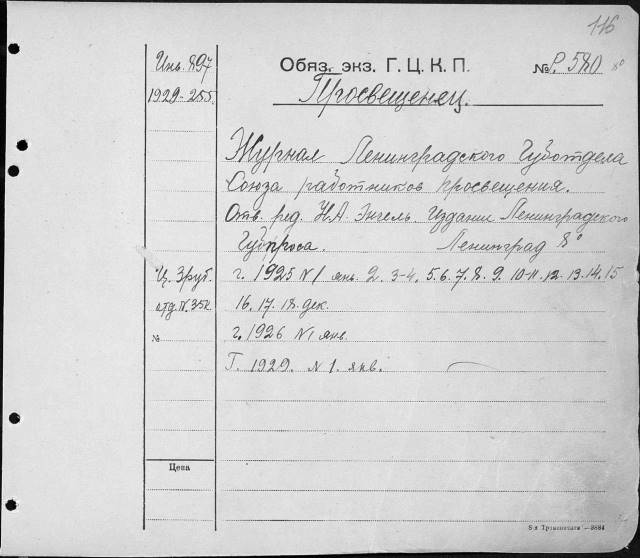 116
Инв. 897
1929-255.
Обяз. экз. Г. Ц. К. П.
№ Р. 580 8°
Просвещенец.
Журнал Ленинградского Губотдела
Союза работников просвещения.
Отв. ред. Н.А. Энгель. Издание Ленинградского
Губпроса. Ленинград 8°
Ц. 3 руб.
отд. N. 35к.
№
г. 1925 N 1 янв. 2. 3-4. 5. 6. 7. 8. 9. 10-11. 12. 13. 14. 15
16. 17. 18. дек.
г. 1926 N 1 янв.
Г. 1929. N 1. янв.
Цена
8-я Транспечати —3884